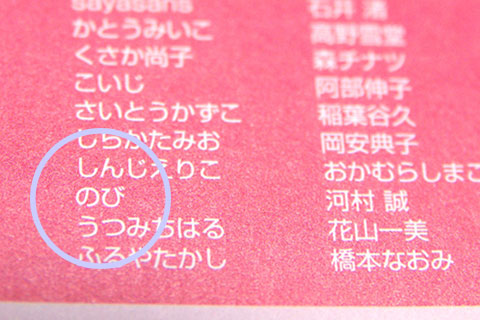 sayasans
かとうみいこ
くさか尚子
こいじ
さいとうかずこ
しらかたみお
しんじえりこ
のび
うつみちはる
ふるやたかし
石井 渚
高野雪堂
森チナツ
阿部伸子
稲葉谷久
岡安典子
おかむらしまこ
河村 誠
花山一美
橋本なおみ